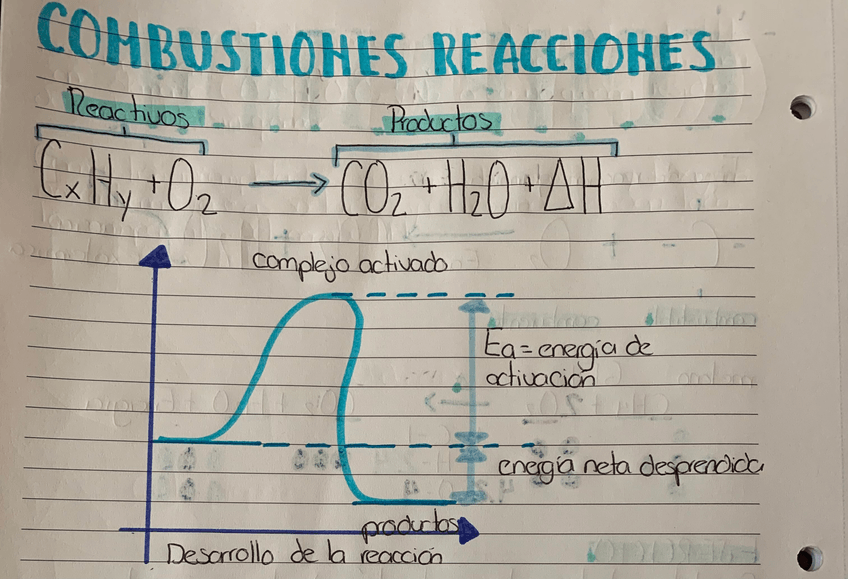 COMBUSTIONES REACCIONES
Reactivos Productos
CxHy + O2 → CO2 + H2O + ΔH
complejo activado
Ea = energía de
activación
energía neta desprendida
productos
Desarrollo de la reacción